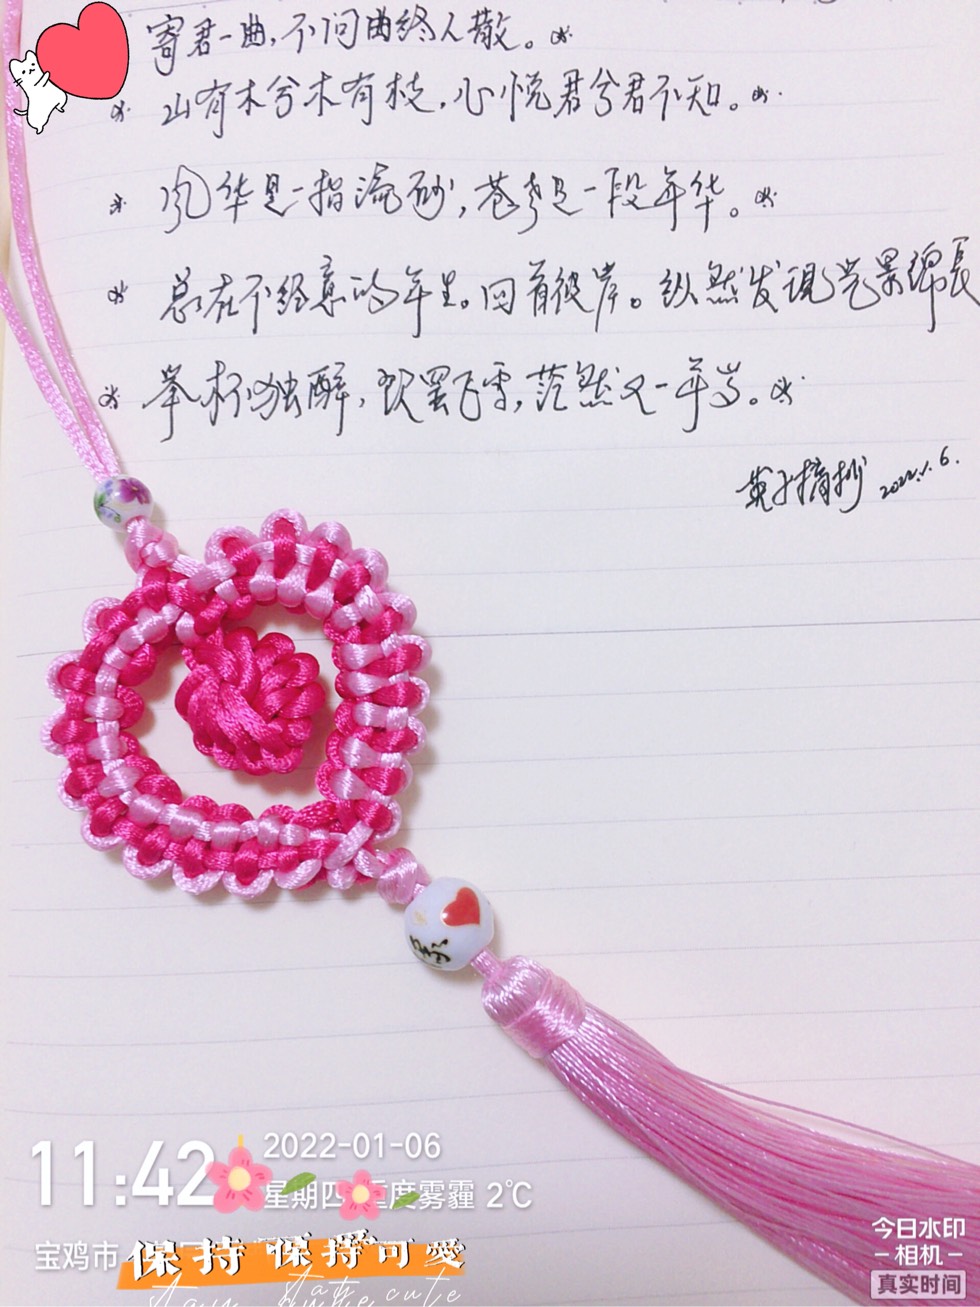 寄君一曲，不问曲终人散。
山有木兮木有枝，心悦君兮君不知。
风华是一指流砂，苍老是一段年华。
总在不经意的年生。回首彼岸。纵然发现光景绵长
举杯独醉，饮罢飞雪，茫然又一年岁。
英子摘抄 2022.1.6.
11:42
2022-01-06
星期四 重度雾霾 2℃
宝鸡市
保持 保持可爱
Stay cute
今日水印
-相机-
真实时间